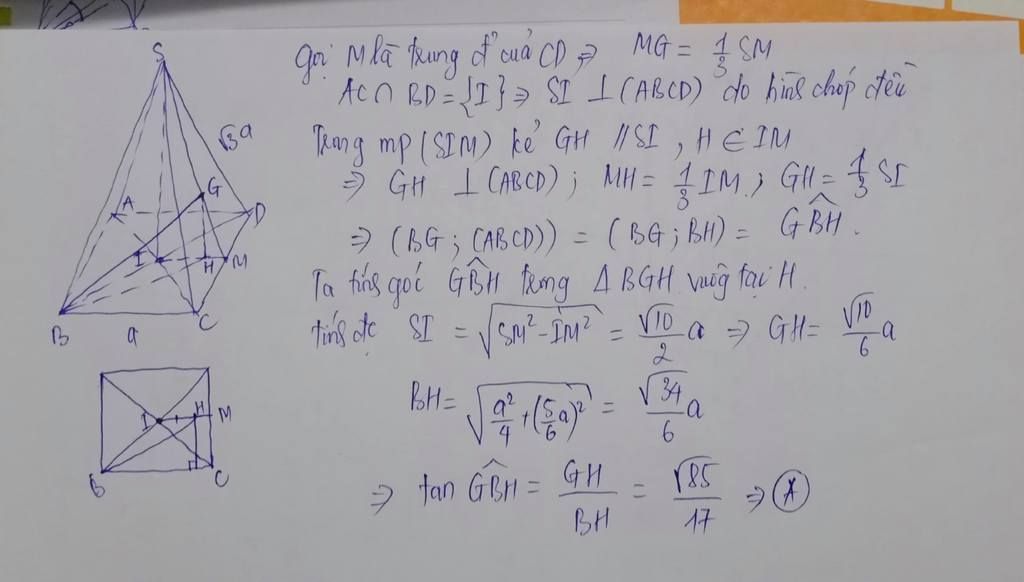 Gọi M là trung đ' của CD => MG = 1/3 SM
AC ∩ BD = {I} => SI ⊥ (ABCD) do hình chóp đều
Trong mp (SIM) kẻ GH // SI , H ∈ IM
=> GH ⊥ (ABCD) ; MH = 1/3 IM ; GH = 1/3 SI
=> (BG ; (ABCD)) = (BG ; BH) = \widehat{GBH} .
Ta tính góc \widehat{GBH} trong Δ BGH vuông tại H .
tính đc SI = √(SM² - IM²) = √10/2 a => GH = √10/6 a
BH = √(a²/4 + (5/6 a)²) = √34/6 a
=> tan \widehat{GBH} = GH/BH = √85/17 => Ⓐ
S
√3 a
G
A
D
I
H
M
B
a
C
I
H
M
B
C